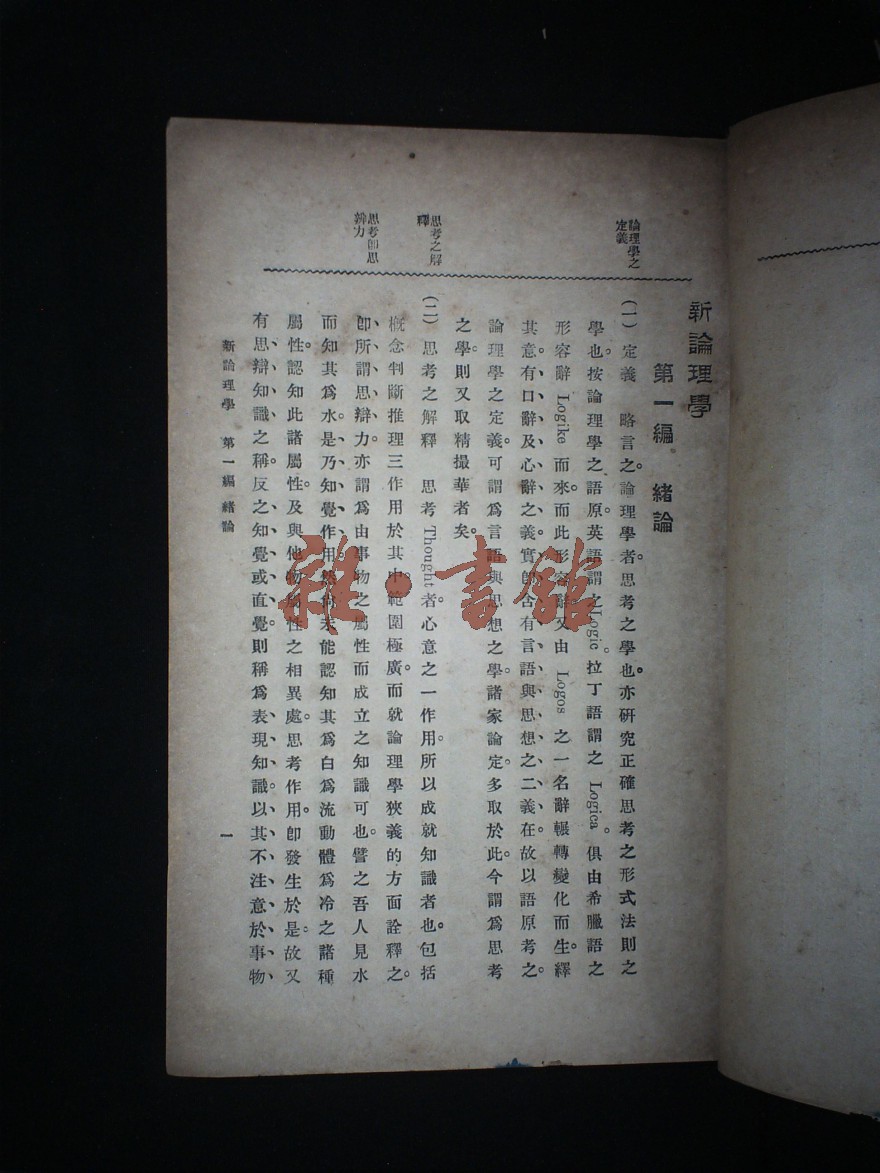 新論理學
第一編 緒論
論理學之
定義
(一)定義 略言之。論理學者。思考之學也。亦研究正確思考之形式法則之
學也。按論理學之語原。英語謂之Logic。拉丁語謂之 Logica。俱由希臘語之
形容辭 Logike 而來。而此形容辭又由 Logos 之一名辭輾轉變化而生。繹
其意。有口辭及心辭之義。實卽含有言語與思想之二義。在故以語原考之。
論理學之定義。可謂爲言語與思想之學。諸家論定。多取於此。今謂爲思考
之學。則又取精撮華者矣。
思考之解
釋
(二)思考之解釋 思考 Thought 者。心意之一作用。所以成就知識者也。包括
槪念判斷推理三作用於其中。範圍極廣。而就論理學狹義的方面詮釋之。
思考卽思
辨力
卽所謂思辯力。亦謂爲由事物之屬性而成立之知識可也。譬之吾人見水
而知其爲水。是乃知覺作用。然尙未能認知其爲白爲流動體爲冷之諸種
屬性。認知此諸屬性。及與他物屬性之相異處。思考作用。卽發生於是。故又
有思辯知識之稱。反之知覺或直覺。則稱爲表現知識。以其不注意於事物
新論理學 第一編 緒論
一
雜·書館